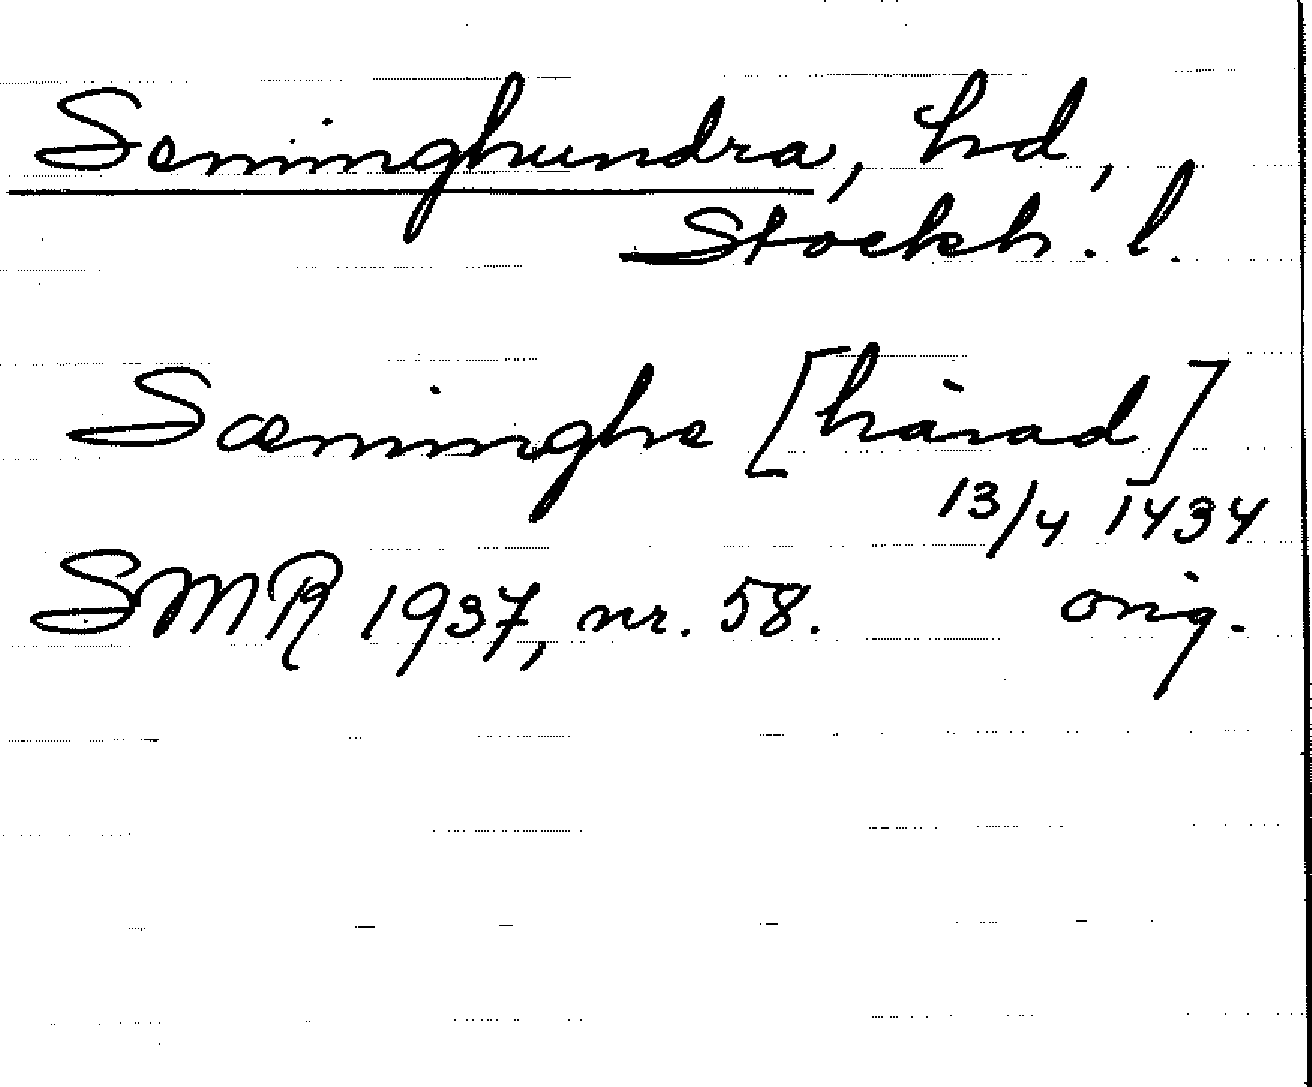 Seminghundra, hd,
Stockh. l.
Sæminghe [härad]
13/4 1434
SMR 1937, nr. 58. orig.